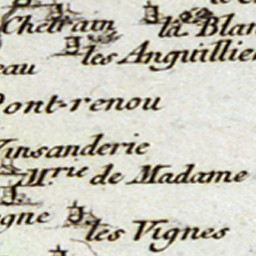 Chetrain
la Blan
les Anguillie
eau
Pont-renou
insanderie
M.rie de Madame
gne
les Vignes